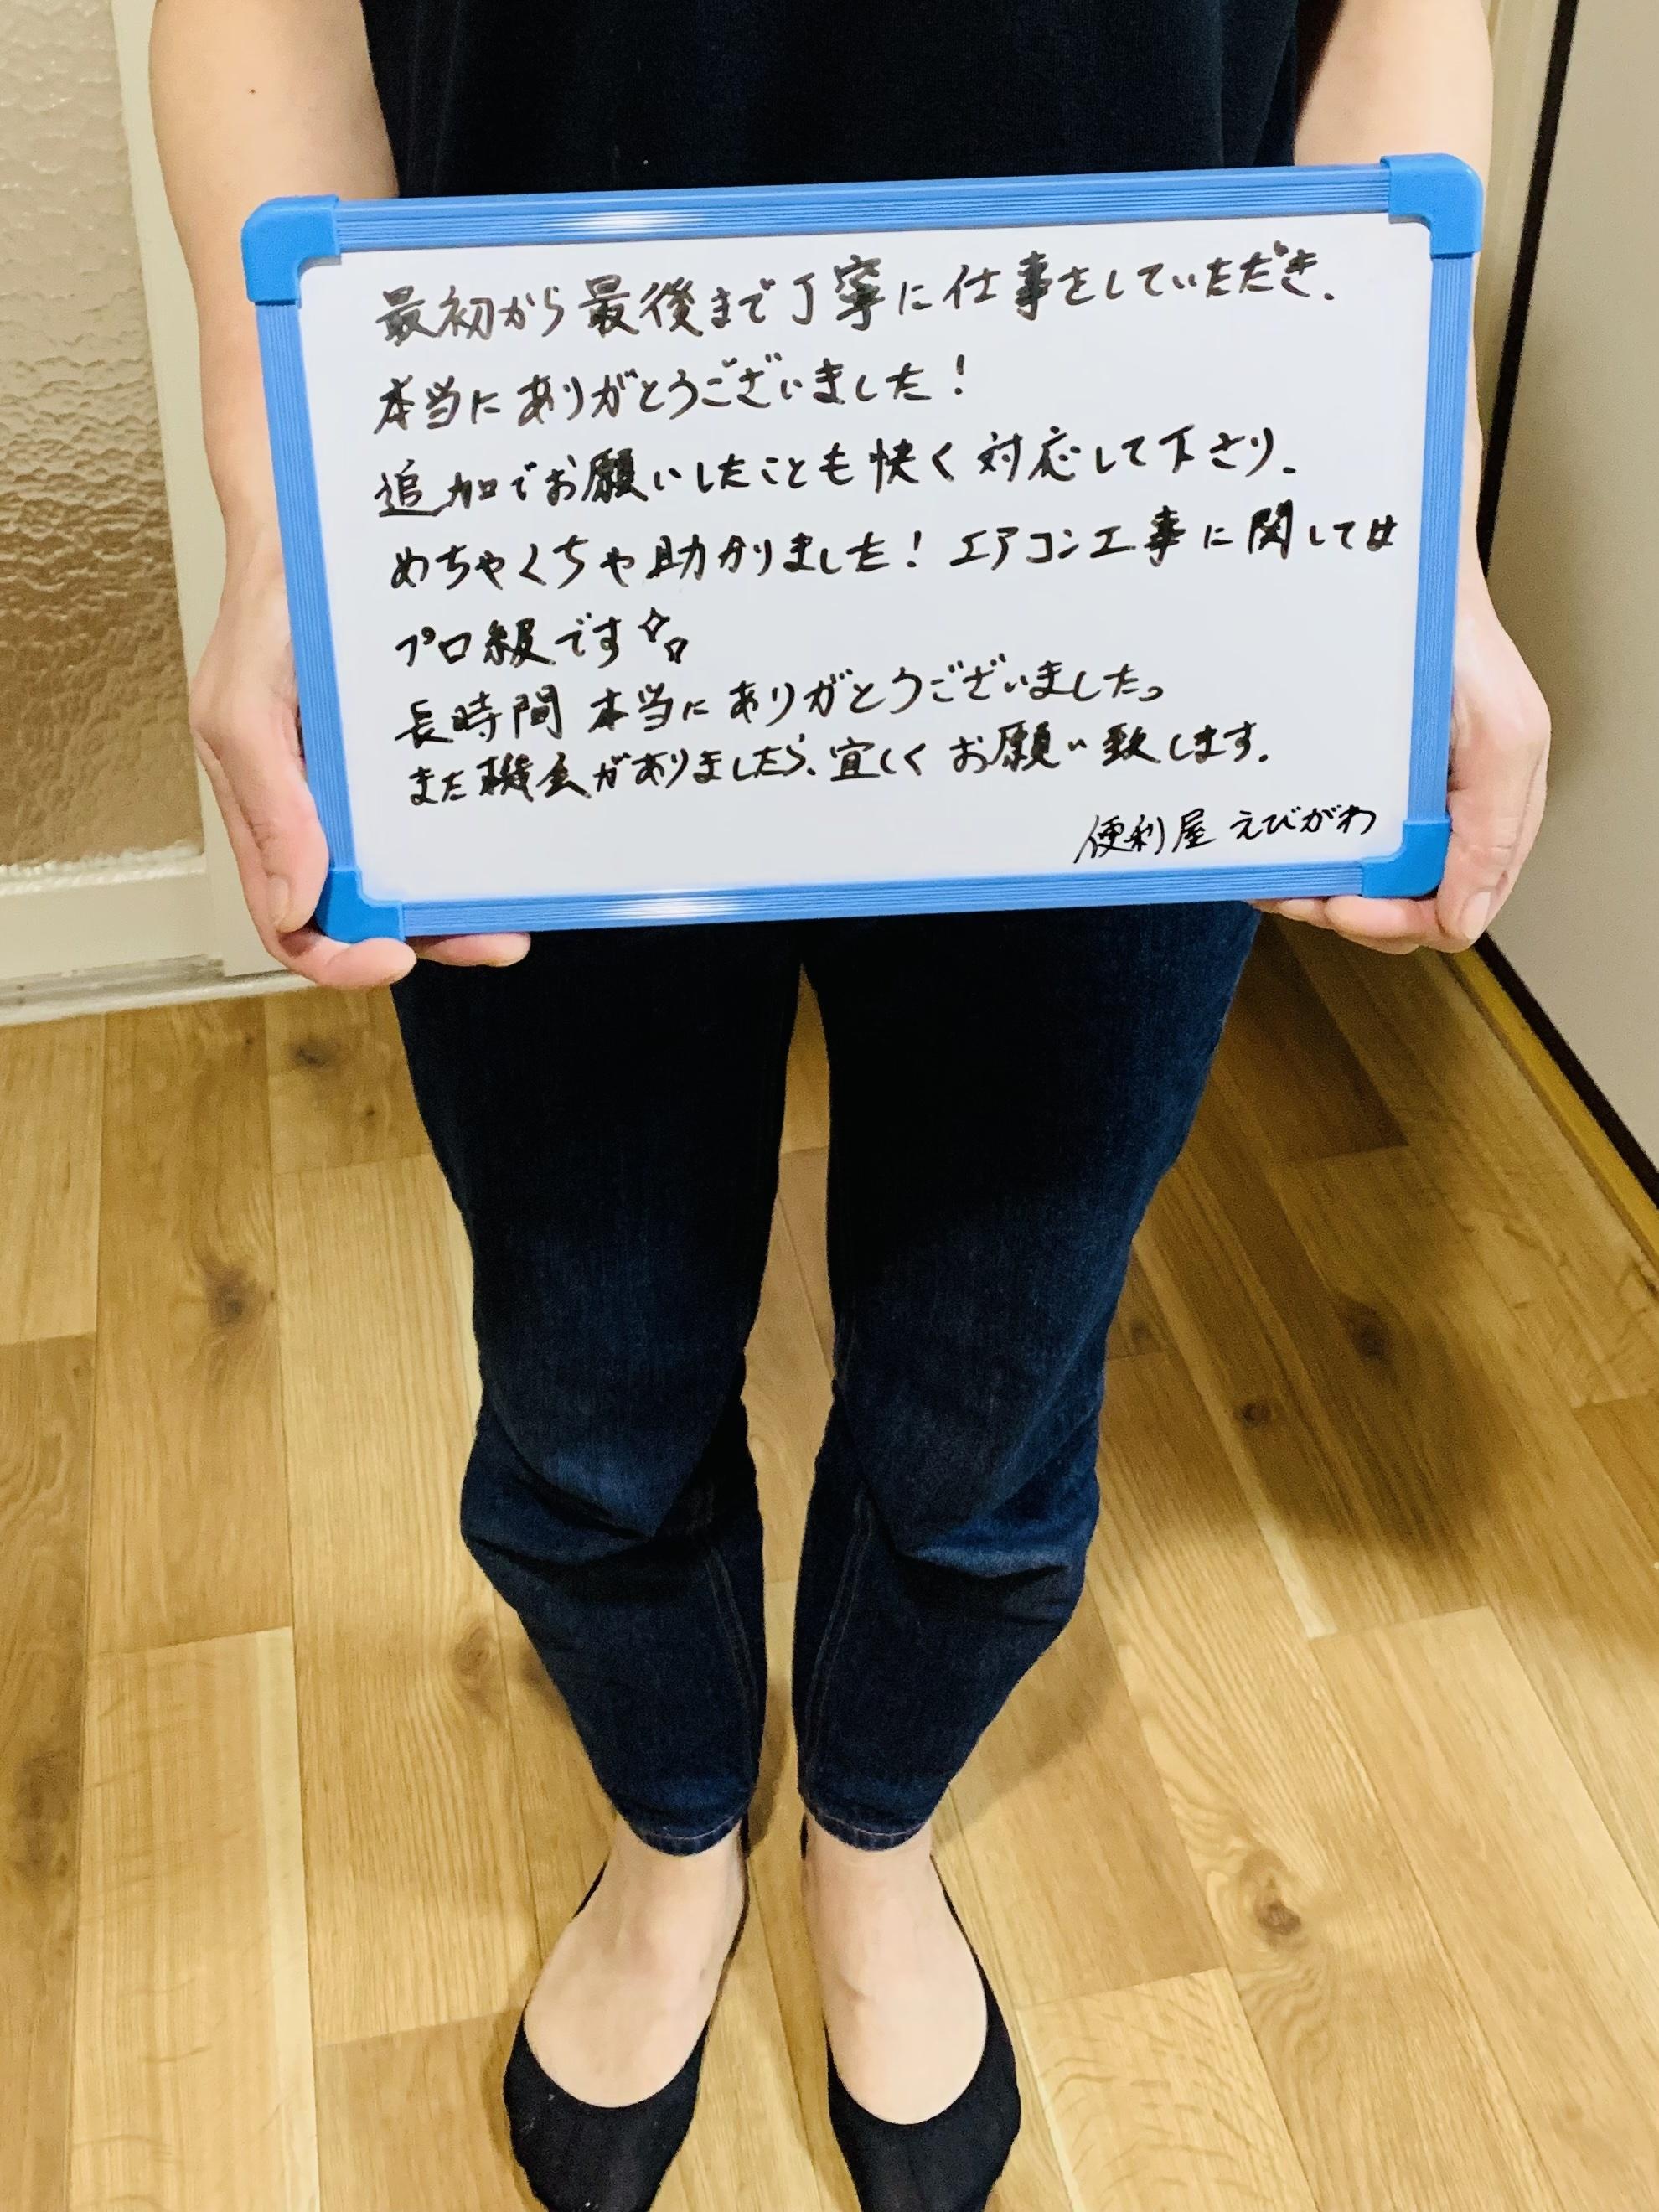 最初から最後まで丁寧に仕事をしていただき、
本当にありがとうございました!
追加でお願いしたことも快く対応して下さり、
めちゃくちゃ助かりました!エアコン工事に関しては
プロ級です
長時間本当にありがとうございました。
また機会がありましたら、宜しくお願い致します。
便利屋 えびがわ